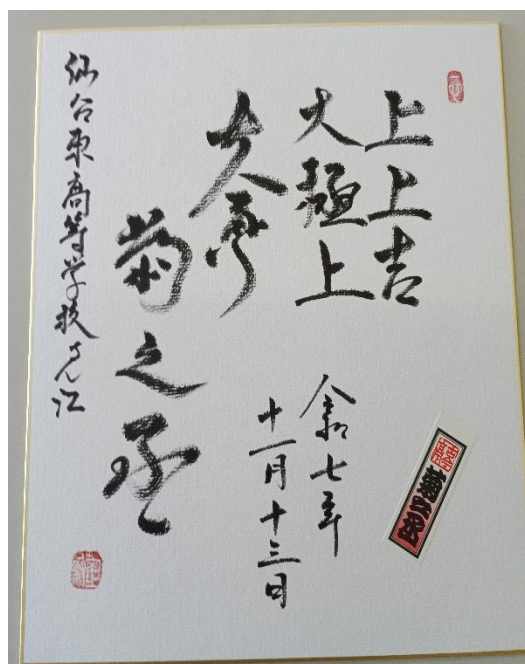 上上吉
大極上
古今亭
菊之丞
令和七年
十一月十三日
仙台東高等学校さん江
菊之丞